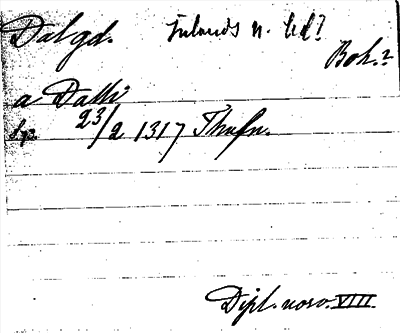 Dal gd. Inlands n. hd?
Boh.?
a Dalli
Sp. 23/2 1317 Thufn.
Dipl. norv. VIII.